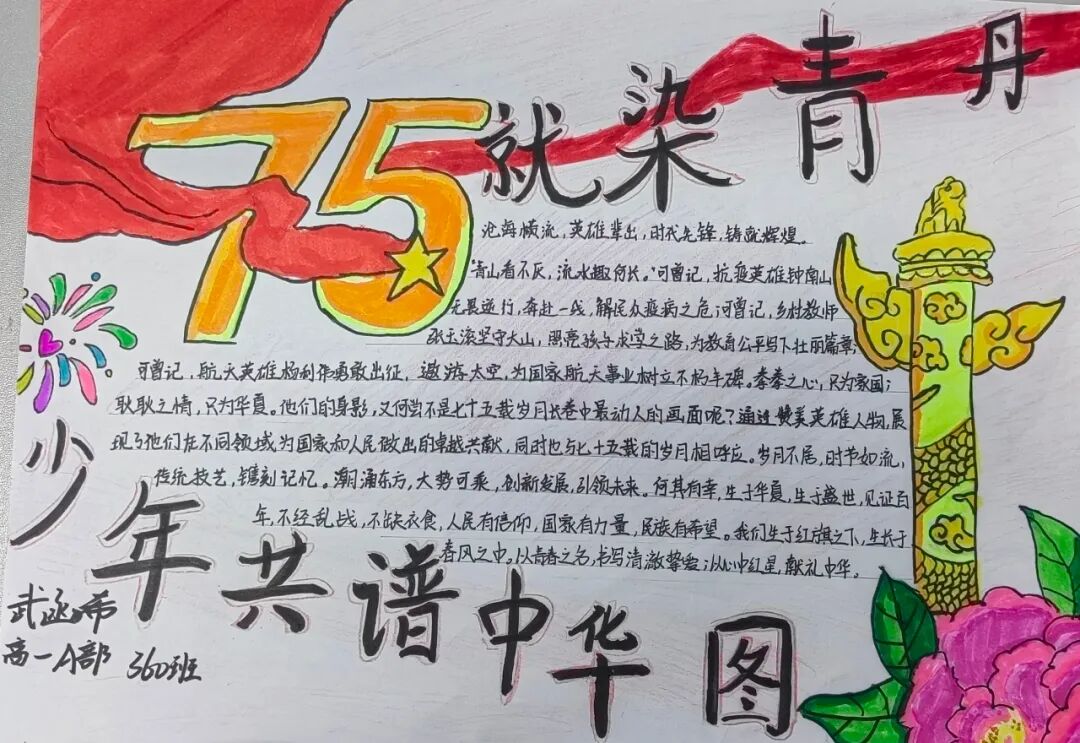 75
就染青丹
沧海横流，英雄辈出，时代先锋，铸就辉煌。
青山看不厌，流水趣何长。可曾记，抗疫英雄钟南山
无畏逆行，奔赴一线，解民众疫病之危；可曾记，乡村教师
张玉滚坚守大山，照亮孩子求学之路，为教育公平写下壮丽篇章；
可曾记，航天英雄杨利伟勇敢出征，遨游太空，为国家航天事业树立不朽丰碑。拳拳之心，只为家国；
耿耿之情，只为华夏。他们的身影，又何尝不是七十五载岁月长卷中最动人的画面呢？通过赞美英雄人物，展
现了他们在不同领域为国家和人民做出的卓越共献，同时也与七十五载的岁月相呼应。岁月不居，时节如流，
传统技艺，镌刻记忆。潮涌东方，大势可乘，创新发展，引领未来。何其有幸，生于华夏，生于盛世，见证百
年，不经乱战，不缺衣食，人民有信仰，国家有力量，民族有希望。我们生于红旗之下，生长于
春风之中。以青春之名，书写清澈挚爱；以心中红星，献礼中华。
少年共谱中华图
武丞希
高一A部 360班